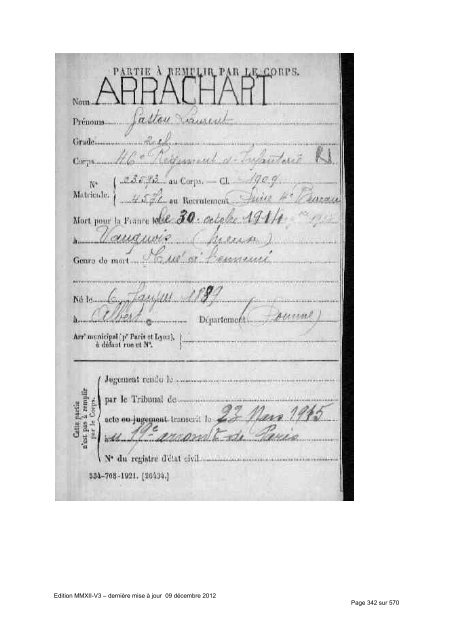 PARTIE À REMPLIR PAR LE CORPS.
Nom ARRACHART
Prénoms Gaston Laurent
Grade 2e cl.
Corps 46e Régiment d'Infanterie
N° 03093 au Corps. — Cl. 1909
Matricule. 4571 au Recrutement Seine 4e Bureau
Mort pour la France le 30 octobre 1914
à Vauquois (Meuse)
Genre de mort Tué à l'ennemi
Né le 6 Janvier 1889
à Albert Département Somme
Arrt municipal (pr Paris et Lyon),
à défaut rue et N°.
Cette partie
n'est pas à remplir
par le Corps.
Jugement rendu le
par le Tribunal de
acte ou jugement transcrit le 23 Mars 1915
au 19e arrondt de Paris
N° du registre d'état civil
534-708-1921. [26434.]
Edition MMXII-V3 – dernière mise à jour 09 décembre 2012
Page 342 sur 570